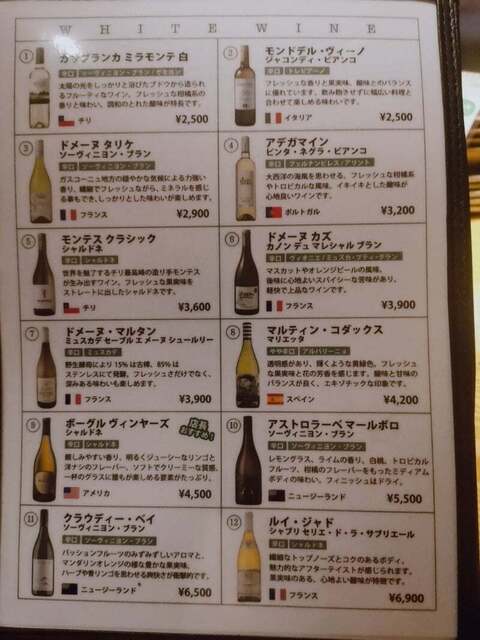 WHITE WINE
①
カサブランカ ミラモンテ 白
辛口 ソーヴィニヨン・ブラン/セミヨン
太陽の光をしっかりと浴びたブドウから造られ
るフルーティなワイン。フレッシュな柑橘系の
香りと味わい、調和のとれた酸味が特長です。
チリ
¥2,500
②
モンドデル・ヴィーノ
ジャコンディ・ビアンコ
辛口 トレビアーノ
フレッシュな香りと果実味、酸味とのバランス
に優れています。飲み飽きせずに幅広い料理と
合わせて楽しめる味わいです。
イタリア
¥2,500
③
ドメーヌ タリケ
ソーヴィニヨン・ブラン
辛口 ソーヴィニヨン・ブラン
ガスコーニュ地方の穏やかな気候による力強い
香り、繊細でフレッシュながら、ミネラルを感じ
る事もでき、しっかりとした味わいが楽しめます。
フランス
¥2,900
④
アデガマイン
ピンタ・ネグラ・ビアンコ
辛口 フェルナンピレス/アリント
大西洋の海風を思わせる、フレッシュな柑橘系
やトロピカルな風味。イキイキとした酸味が
心地良いワインです。
ポルトガル
¥3,200
⑤
モンテス クラシック
シャルドネ
辛口 シャルドネ
世界を魅了するチリ最高峰の造り手モンテス
が生み出すワイン。フレッシュな果実味を
ストレートに出したシャルドネです。
チリ
¥3,600
⑥
ドメーヌ カズ
カノン デュ マレシャル ブラン
辛口 ヴィオニエ/ミュスカ・プティ・グラン
マスカットやオレンジピールの風味。
後味に心地よいスパイシーな苦味があり、
軽快で上品なワインです。
フランス
¥3,900
⑦
ドメーヌ・マルタン
ミュスカデ セーブル エ メーヌ シュールリー
辛口 ミュスカデ
野生酵母により15%は古樽、85%は
ステンレスにて発酵。フレッシュさだけでなく、
深みある味わいも楽しめます。
フランス
¥3,900
⑧
マルティン・コダックス
マリエッタ
やや辛口 アルバリーニョ
透明感があり、輝くような黄緑色。フレッシュ
な果実味と花の芳香を感じます。酸味と甘味の
バランスが良く、エキゾチックな印象です。
スペイン
¥4,200
⑨
ボーグル ヴィンヤーズ
シャルドネ
店長
おすすめ!
辛口 シャルドネ
親しみやすい香り、明るくジューシーなリンゴと
洋ナシのフレーバー、ソフトでクリーミーな質感、
一杯のグラスに誰もが楽しめる要素がたっぷり。
アメリカ
¥4,500
⑩
アストロラーベ マールボロ
ソーヴィニヨン・ブラン
辛口 ソーヴィニヨン・ブラン
レモングラス、ライムの香り、白桃、トロピカル
フルーツ、柑橘のフレーバーをもったミディアム
ボディの味わい。フィニッシュはドライ。
ニュージーランド
¥5,500
⑪
クラウディー・ベイ
ソーヴィニヨン・ブラン
辛口 ソーヴィニヨン・ブラン
パッションフルーツのみずみずしいアロマと、
マンダリンオレンジの様な豊かな果実味、
ハーブや青リンゴを思わせる爽快さが衝撃的です。
ニュージーランド
¥6,500
⑫
ルイ・ジャド
シャブリ セリエ・ド・ラ・サブリエール
辛口 シャルドネ
繊細なトップノーズとコクのあるボディ。
魅力的なアフターテイストが感じられます。
果実味のある、心地よい酸が特徴です。
フランス
¥6,900